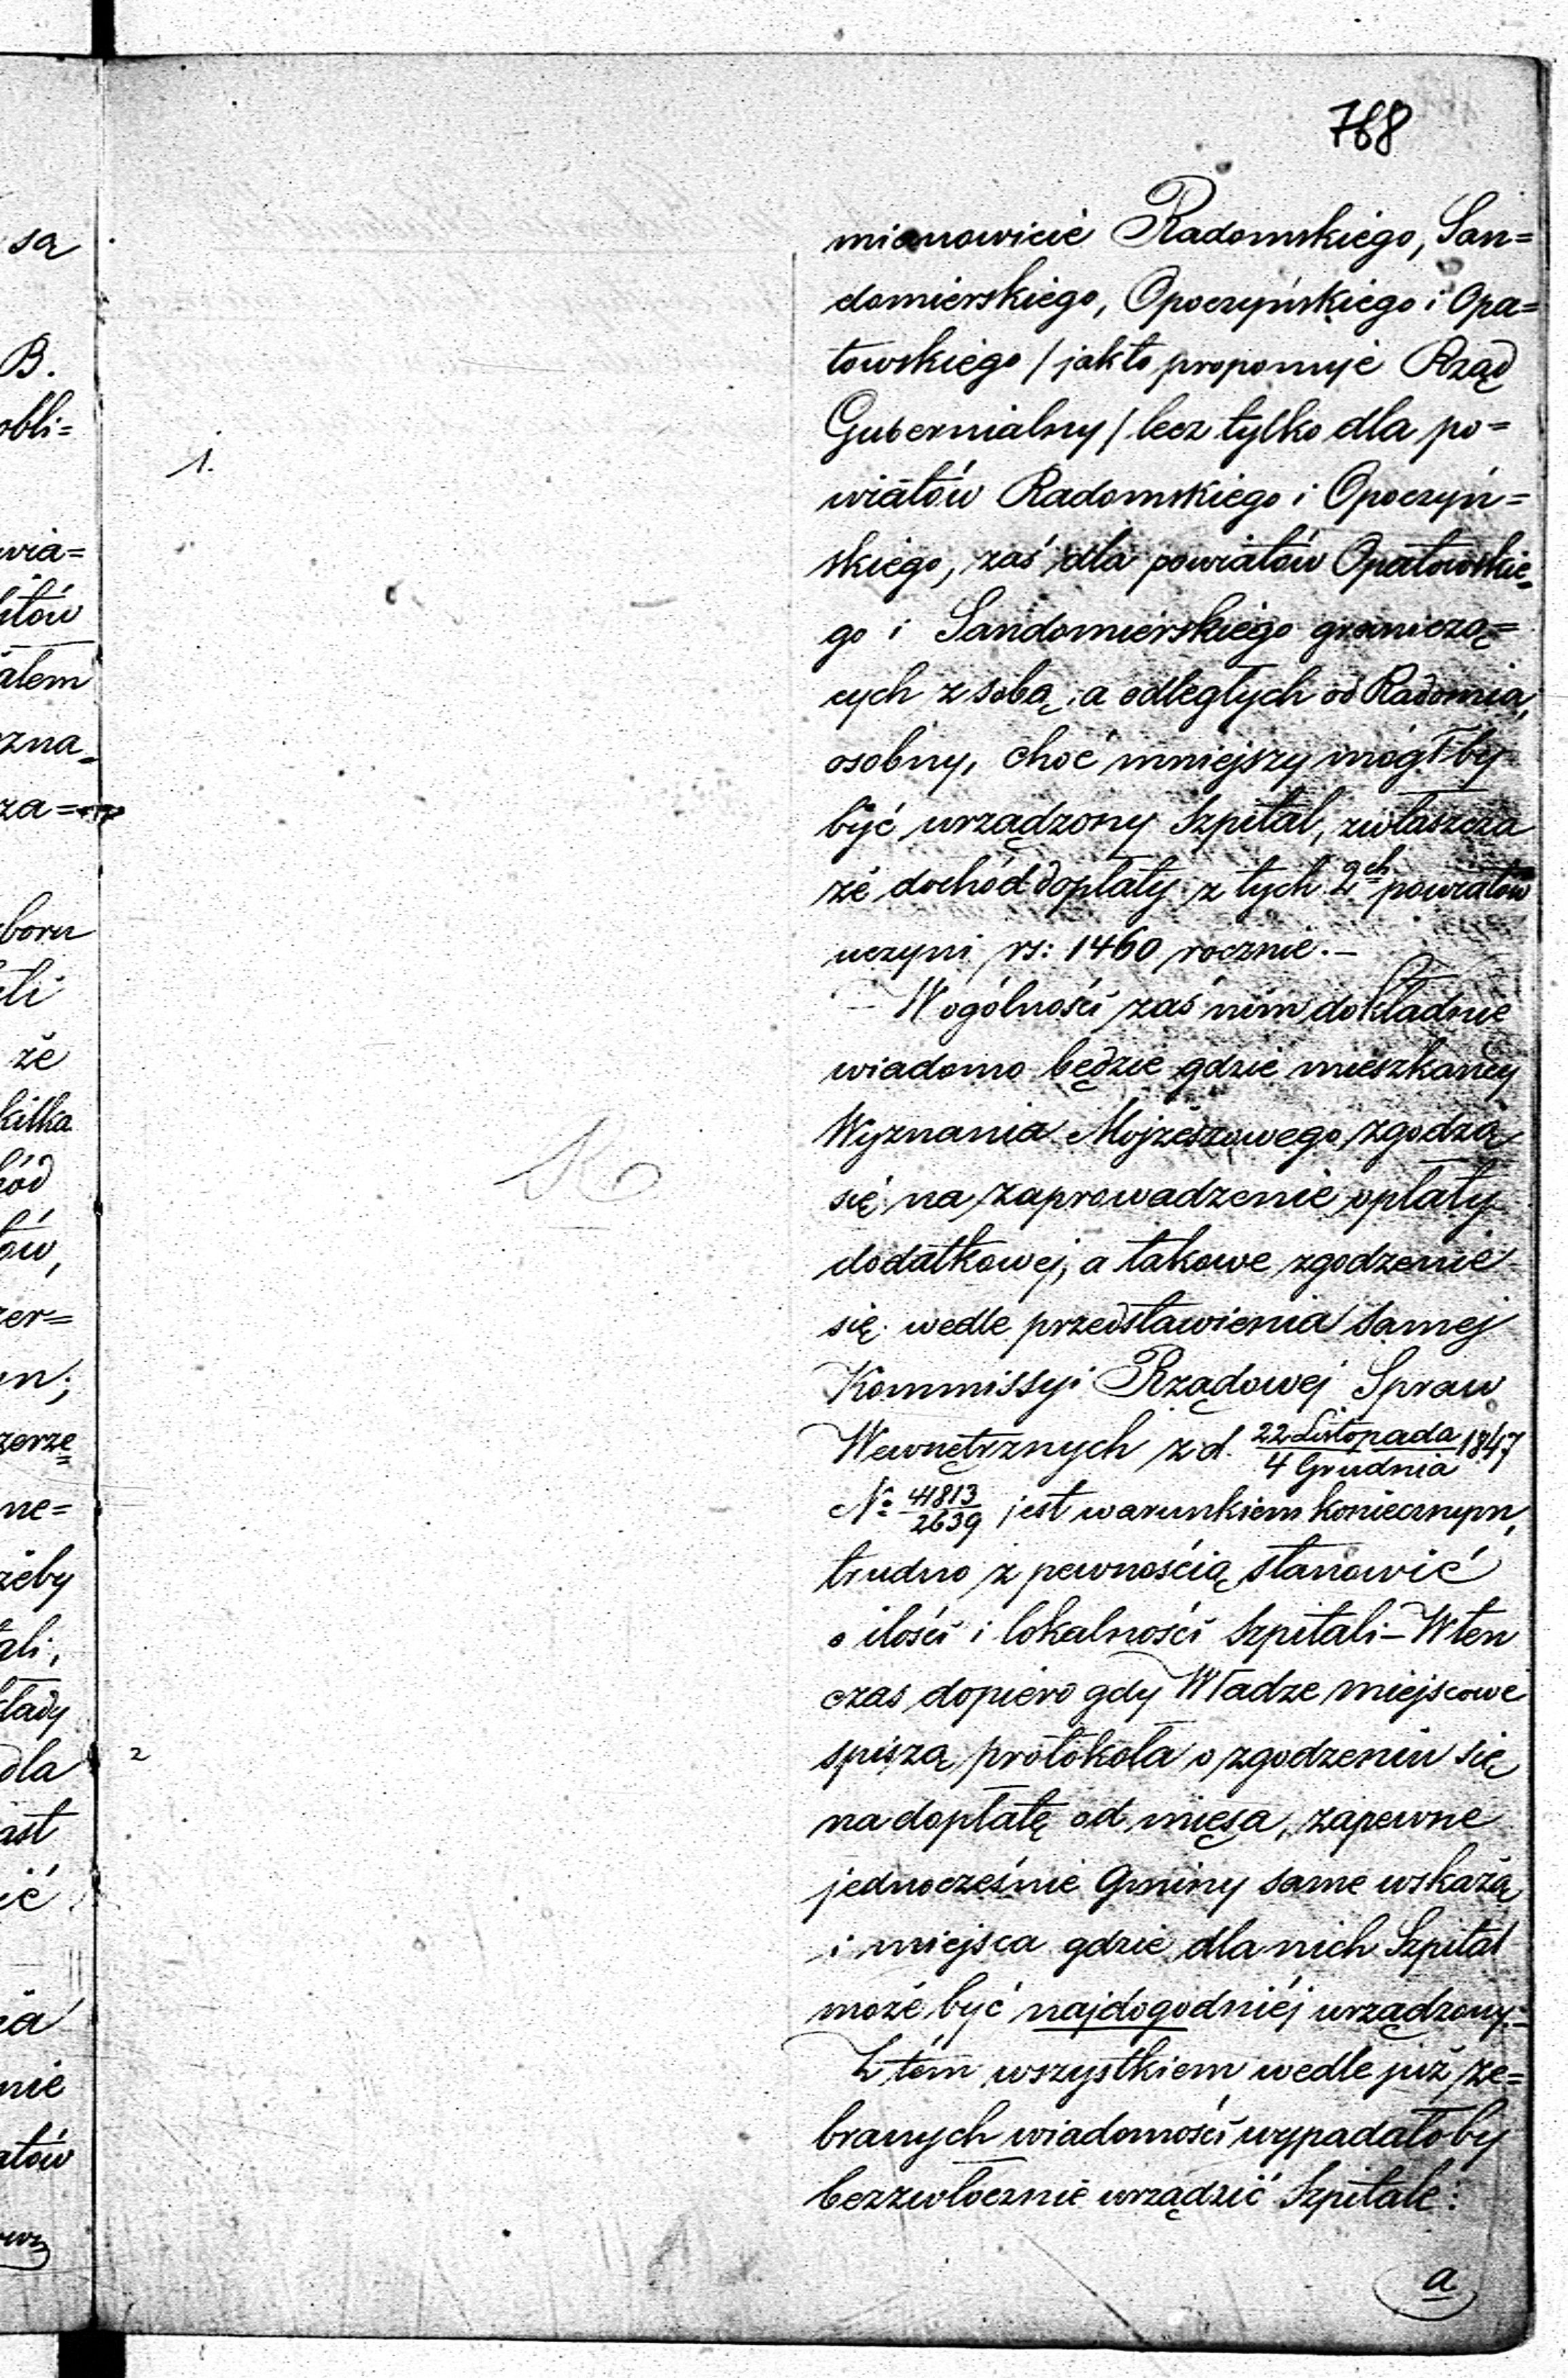 768
mianowicie Radomskiego, San=
domierskiego, Opoczyńskiego i Opa=
towskiego / jak to proponuje Rząd
Gubernialny / lecz tylko dla po=
wiatów Radomskiego i Opoczyń=
skiego, zaś dla powiatów Opatowskie=
go i Sandomierskiego graniczą=
cych z sobą, a odległych od Radomia,
osobny, choć mniejszy mógłby
być urządzony Szpital, zwłaszcza
że dochód dopłaty z tych 2ch powiatów
uczyni rs: 1460 rocznie.—
— W ogólności zaś nim dokładnie
wiadomo będzie gdzie mieszkańcy
Wyznania Mojżeszowego zgodzą
się na zaprowadzenie opłaty
dodatkowej, a takowe zgodzenie
się wedle przedstawienia samej
Kommissyi Rządowej Spraw
Wewnętrznych z d. 22 Listopada / 4 Grudnia 1847
No 41813/2639 jest warunkiem koniecznym,
trudno z pewnością stanowić
o ilości i lokalności Szpitali — W ten
czas dopiero gdy Władze miejscowe
spiszą protokóła o zgodzeniu się
na dopłatę od mięsa, zapewne
jednocześnie Gminy same wskażą
i miejsca gdzie dla nich Szpital
może być najdogodniéj urządzony.=
Z tém wszystkiem wedle już ze=
branych wiadomości wypadałoby
bezzwłocznie urządzić Szpitale:
a
1.
2
są
B.
obli=
wia=
atem
zna=
za=
boru
że
kilka
ów,
zer=
ne=
żeby
tali,
dla
ast
ić
nie
atów